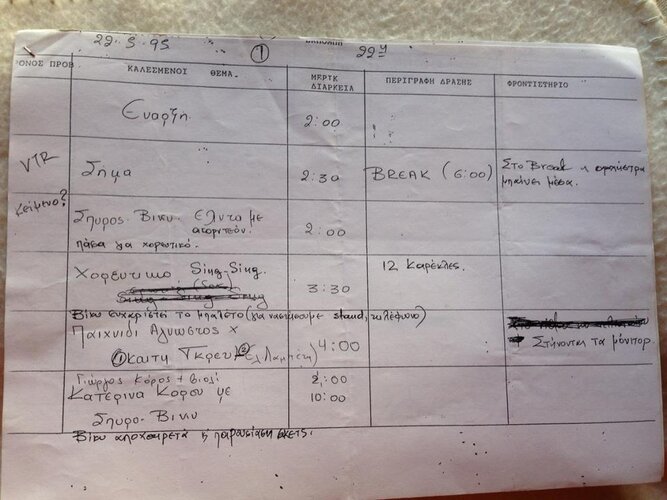 22-5-95
1
22η
ΟΝΟΣ ΠΡΟΒ
ΚΑΛΕΣΜΕΝΟΙ ΘΕΜΑ.
ΜΕΡΙΚ ΔΙΑΡΚΕΙΑ
ΠΕΡΙΓΡΑΦΗ ΔΡΑΣΗΣ
ΦΡΟΝΤΙΣΤΗΡΙΟ
Εναρξη
2:00
VTR
Σήμα
2:30
BREAK (6:00)
Στο Break η
μπαίνει μέσα.
Κείμενο?
Σπυρος. Βικυ. με
ακορντεόν.
πάσα για χορευτικό.
2:00
Χορευτικο Sing-Sing.
3:30
12 Καρέκλες.
Βίκυ ευχαριστεί το μπαλέτο (για stand, τηλέφωνο)
Παιχνιδι Αγνωστος Χ
1 Καιτη Γκρευ 2 Ελ Λαμπέτη
4:00
Στήνονται τα μόνιτορ.
Γιώργος Κόρος + βιολί
2:00
Κατερινα Κορου με
10:00
Σπυρο-Βικυ
Βίκυ αποχαιρετά & παρουσίαση σκετς.